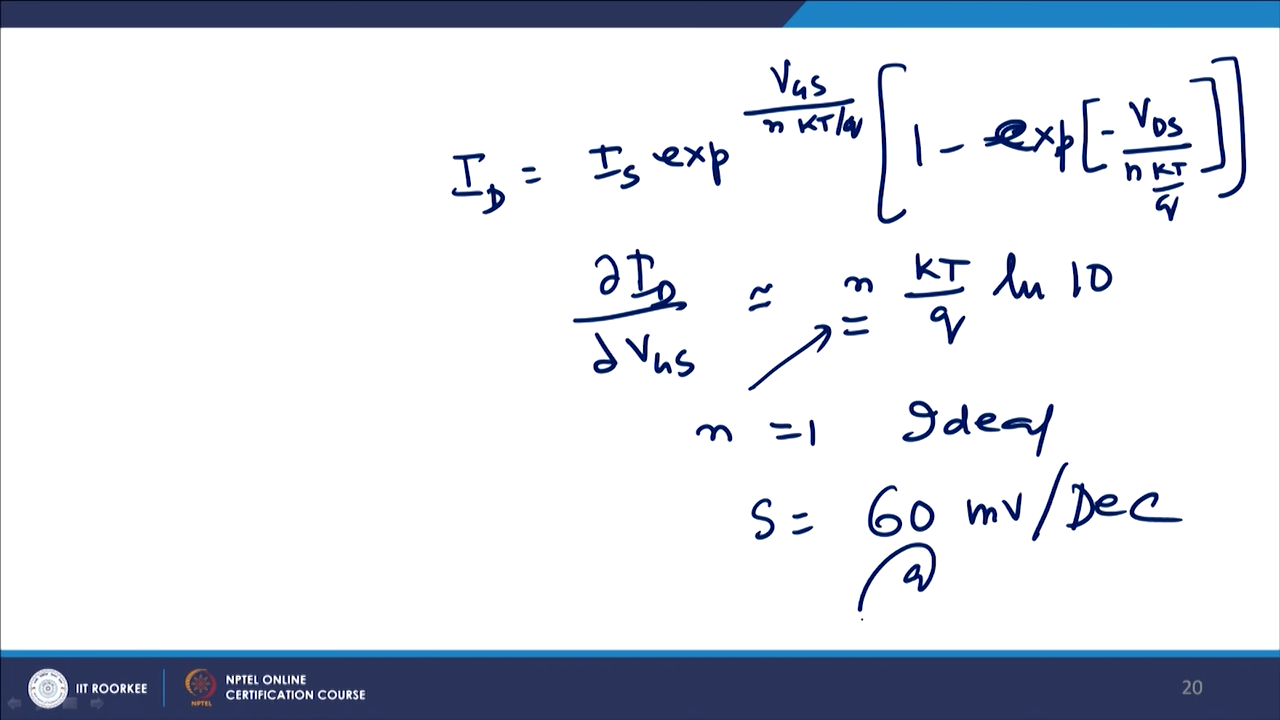 I_D = I_S exp^(V_GS / (n KT/q)) [1 - exp[- V_DS / (n KT/q)]]
∂I_D / ∂V_GS ≃ n KT/q ln 10
n = 1 Ideal
S = 60 mV/Dec
IIT ROORKEE
NPTEL
NPTEL ONLINE
CERTIFICATION COURSE
20